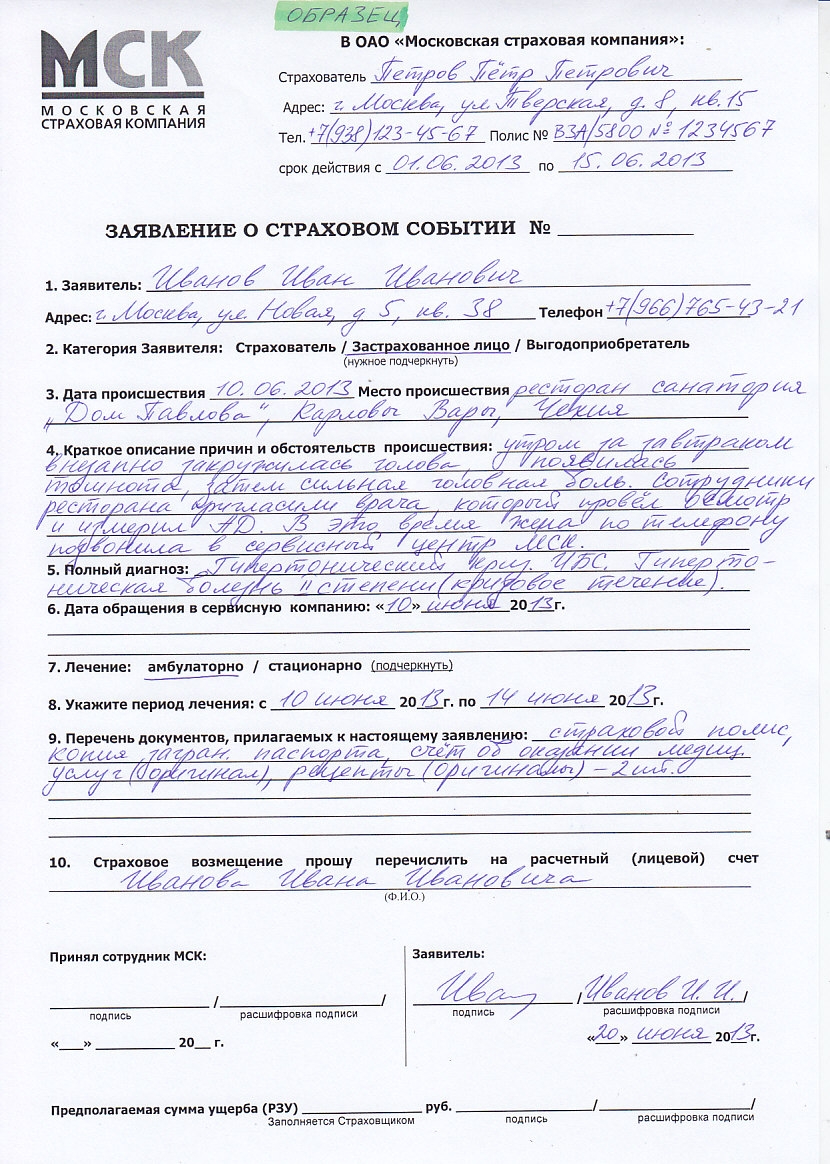 ОБРАЗЕЦ
МСК
МОСКОВСКАЯ
СТРАХОВАЯ КОМПАНИЯ
В ОАО «Московская страховая компания»:
Страхователь Петров Пётр Петрович
Адрес: г. Москва, ул. Тверская, д. 8, кв. 15
Тел. +7(938)123-45-67 Полис № ВЗА/5800 № 1234567
срок действия с 01.06.2013 по 15.06.2013
ЗАЯВЛЕНИЕ О СТРАХОВОМ СОБЫТИИ № ____________
1. Заявитель: Иванов Иван Иванович
Адрес: г. Москва, ул. Новая, д 5, кв. 38 Телефон +7(966)765-43-21
2. Категория Заявителя: Страхователь / Застрахованное лицо / Выгодоприобретатель
(нужное подчеркнуть)
3. Дата происшествия 10.06.2013 Место происшествия ресторан санатория
„Дом Павлова", Карловы Вары, Чехия
4. Краткое описание причин и обстоятельств происшествия: утром за завтраком
внезапно закружилась голова, появилась
тошнота, затем сильная головная боль. Сотрудники
ресторана пригласили врача, который провёл осмотр
и измерил АД. В это время жена по телефону
позвонила в сервисный центр МСК.
5. Полный диагноз: Гипертонический криз. ИБС. Гиперто-
ническая болезнь II степени (кризовое течение).
6. Дата обращения в сервисную компанию: «10» июня 2013г.
7. Лечение: амбулаторно / стационарно (подчеркнуть)
8. Укажите период лечения: с 10 июня 2013г. по 14 июня 2013г.
9. Перечень документов, прилагаемых к настоящему заявлению: страховой полис,
копия загран. паспорта, счёт об оказании медиц.
услуг (оригинал), рецепты (оригиналы) – 2 шт.
10. Страховое возмещение прошу перечислить на расчетный (лицевой) счет
Иванова Ивана Ивановича
(Ф.И.О.)
Принял сотрудник МСК:
____________ / ____________/
подпись расшифровка подписи
«___» __________ 20__ г.
Заявитель:
Ива / Иванов И. И. /
подпись расшифровка подписи
«20» июня 2013г.
Предполагаемая сумма ущерба (РЗУ) ____________ руб. ____________/____________/
Заполняется Страховщиком подпись расшифровка подписи